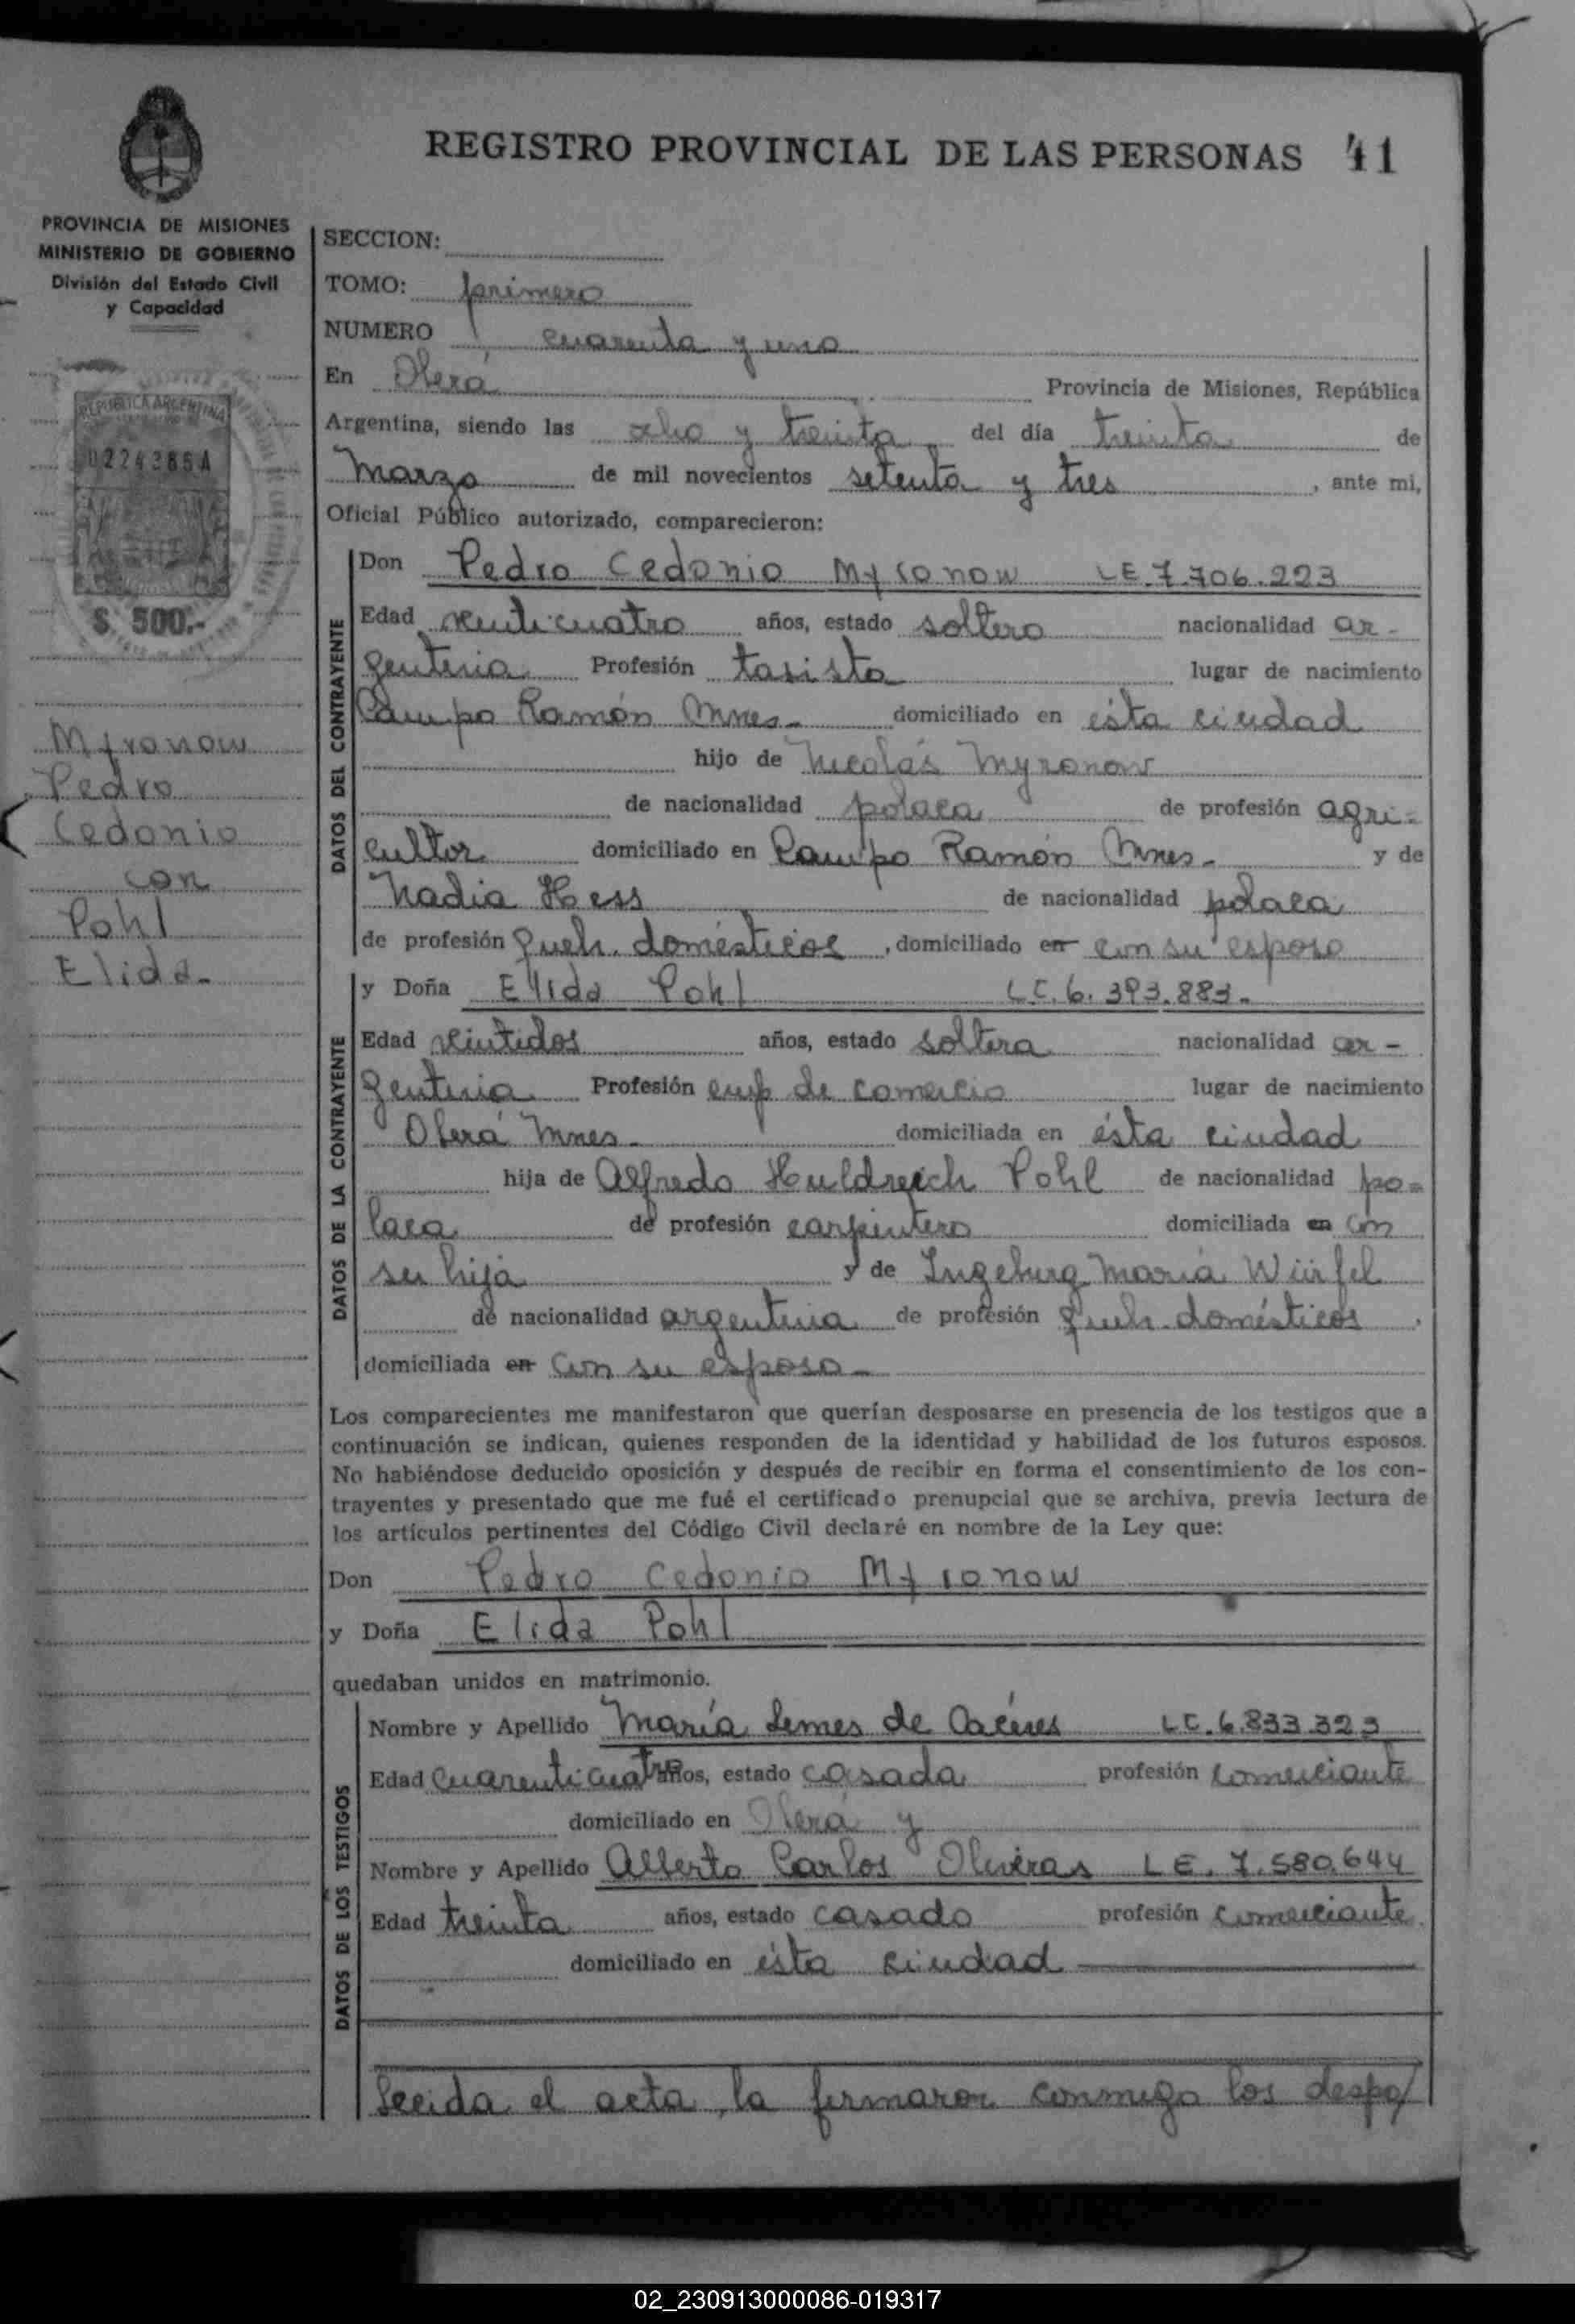 REGISTRO PROVINCIAL DE LAS PERSONAS 41
PROVINCIA DE MISIONES
MINISTERIO DE GOBIERNO
División del Estado Civil
y Capacidad
REPUBLICA ARGENTINA
0224385A
$ 500.-
Myronow
Pedro
Cedonio
con
Pohl
Elida-
SECCION:
TOMO: primero
NUMERO cuarenta y uno
En Oberá Provincia de Misiones, República
Argentina, siendo las ocho y treinta del día treinta de
Marzo de mil novecientos setenta y tres, ante mi,
Oficial Público autorizado, comparecieron:
DATOS DEL CONTRAYENTE
Don Pedro Cedonio Myronow LE.7.706.223
Edad venticuatro años, estado soltero nacionalidad ar-
gentina Profesión taxista lugar de nacimiento
Campo Ramón Mnes- domiciliado en ésta ciudad
hijo de Nicolás Myronow
de nacionalidad polaca de profesión agri-
cultor domiciliado en Campo Ramón Mnes- y de
Nadia Hess de nacionalidad polaca
de profesión queh. domésticos, domiciliado en con su esposo
DATOS DE LA CONTRAYENTE
y Doña Elida Pohl LC.6.393.883-
Edad veintidos años, estado soltera nacionalidad ar-
gentina Profesión emp de comercio lugar de nacimiento
Oberá Mnes- domiciliada en ésta ciudad
hija de Alfredo Huldreich Pohl de nacionalidad po-
laca de profesión carpintero domiciliada en con
su hija y de Ingeburg María Würfel
de nacionalidad argentina de profesión queh. domésticos,
domiciliada en con su esposo-
Los comparecientes me manifestaron que querían desposarse en presencia de los testigos que a
continuación se indican, quienes responden de la identidad y habilidad de los futuros esposos.
No habiéndose deducido oposición y después de recibir en forma el consentimiento de los con-
trayentes y presentado que me fué el certificado prenupcial que se archiva, previa lectura de
los artículos pertinentes del Código Civil declaré en nombre de la Ley que:
Don Pedro Cedonio Myronow
y Doña Elida Pohl
quedaban unidos en matrimonio.
DATOS DE LOS TESTIGOS
Nombre y Apellido María Lemes de Cacéres LC.6.833.323
Edad cuarenticuatro años, estado casada profesión comerciante
domiciliado en Oberá y
Nombre y Apellido Alberto Carlos Oliveras LE.7.580.644
Edad treinta años, estado casado profesión comerciante
domiciliado en ésta ciudad
Leeida el acta, la firmaron conmigo los despo/
02_230913000086-019317